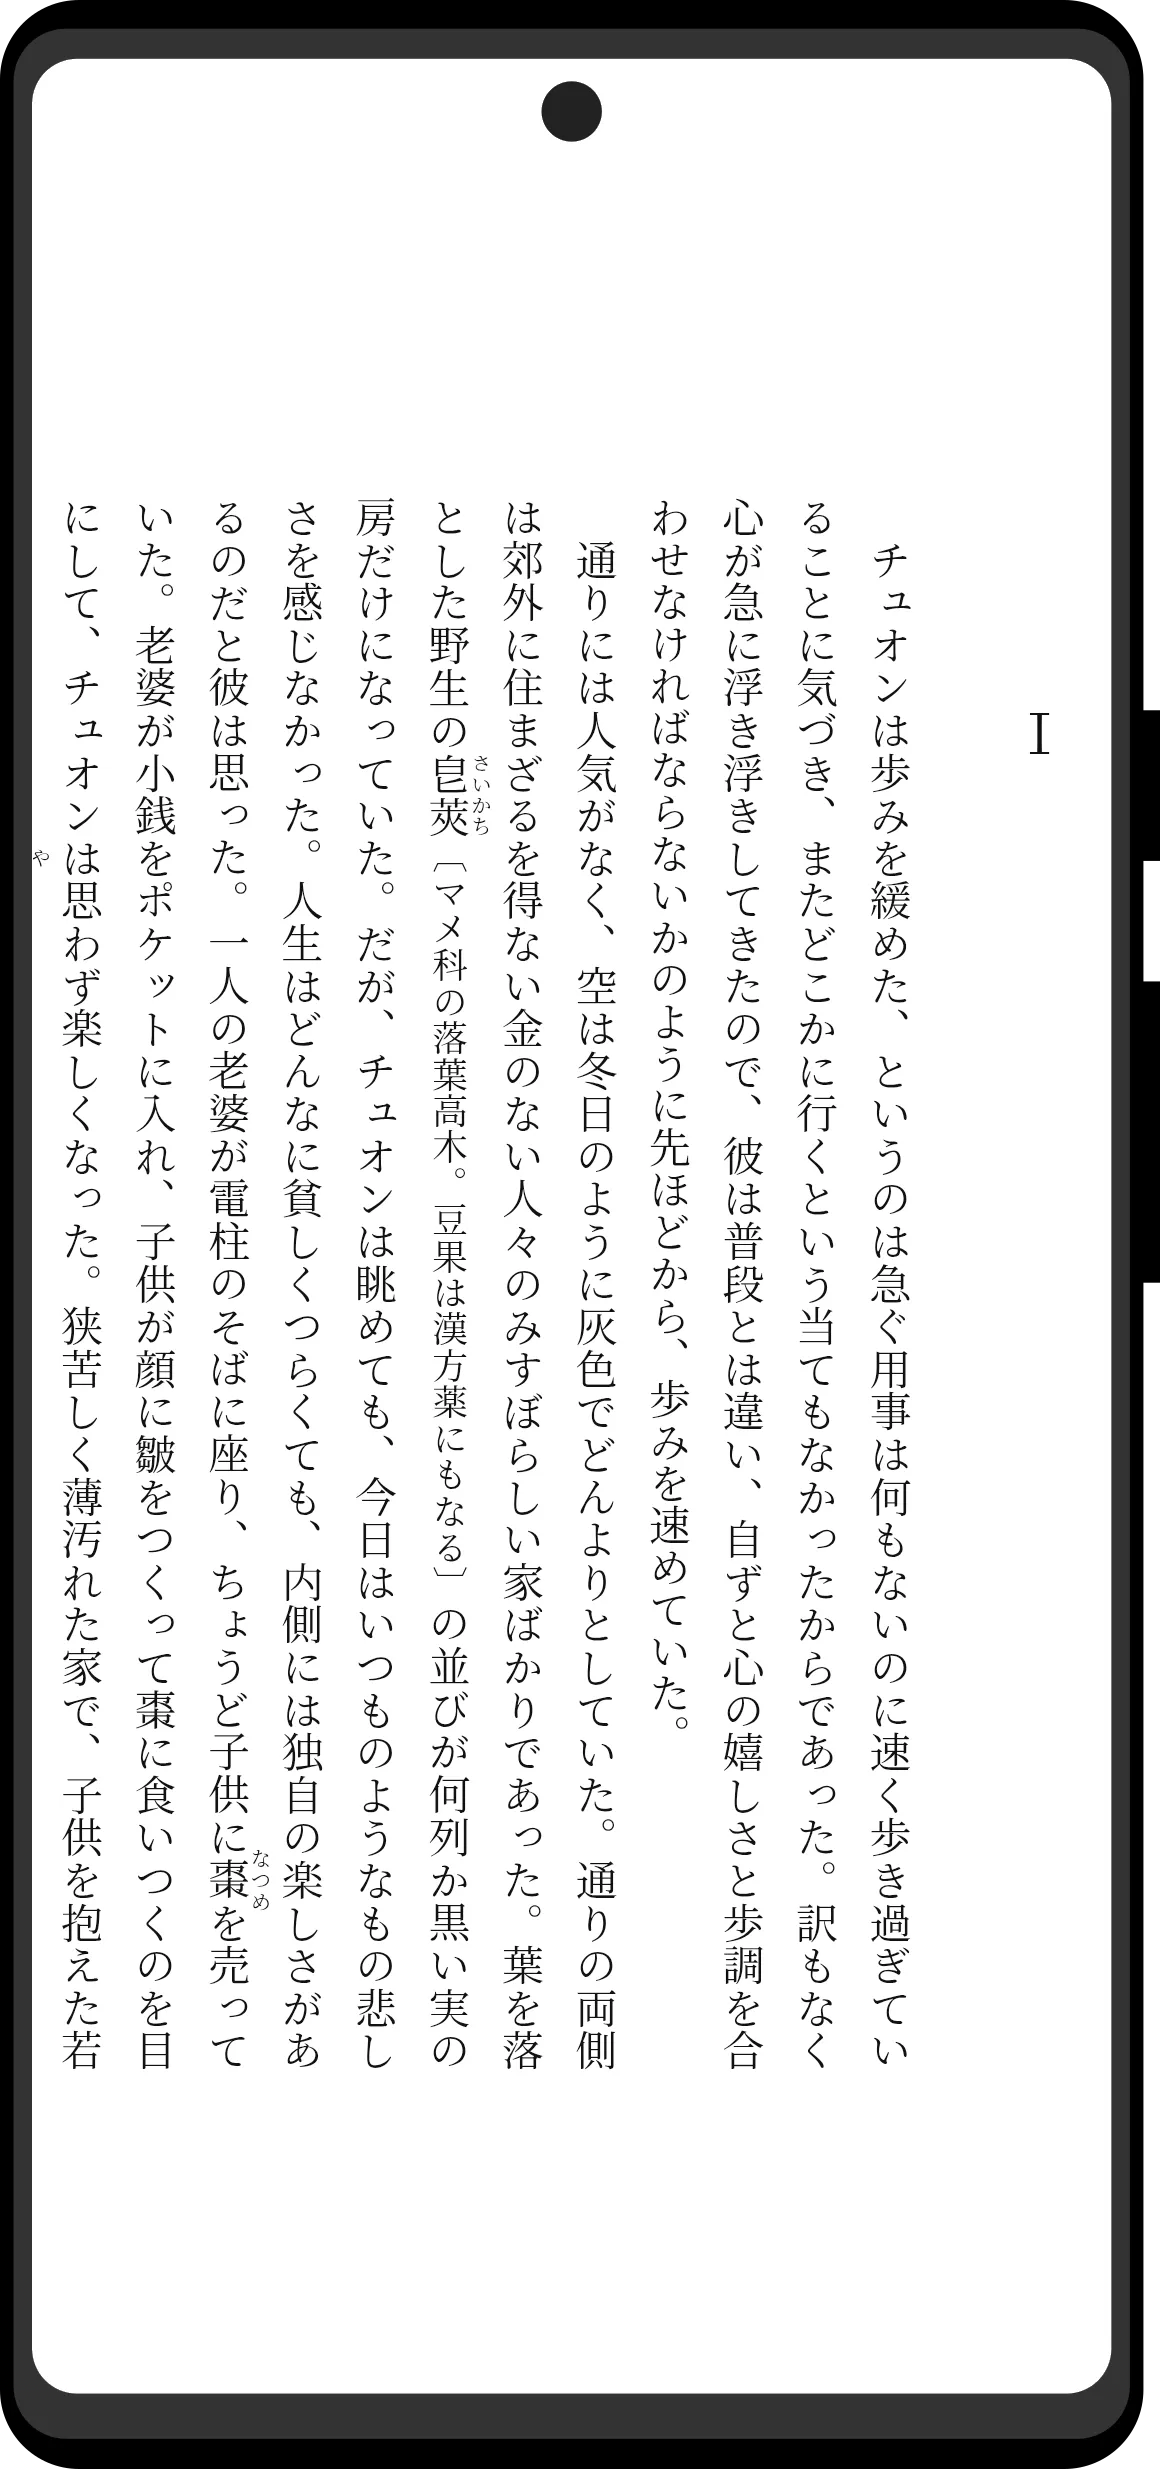 I
チュオンは歩みを緩めた、というのは急ぐ用事は何もないのに速く歩き過ぎてい
ることに気づき、またどこかに行くという当てもなかったからであった。訳もなく
心が急に浮き浮きしてきたので、彼は普段とは違い、自ずと心の嬉しさと歩調を合
わせなければならないかのように先ほどから、歩みを速めていた。
通りには人気がなく、空は冬日のように灰色でどんよりとしていた。通りの両側
は郊外に住まざるを得ない金のない人々のみすぼらしい家ばかりであった。葉を落
さいかち
とした野生の皀莢〔マメ科の落葉高木。豆果は漢方薬にもなる〕の並びが何列か黒い実の
房だけになっていた。だが、チュオンは眺めても、今日はいつものようなもの悲し
さを感じなかった。人生はどんなに貧しくつらくても、内側には独自の楽しさがあ
なつめ
るのだと彼は思った。一人の老婆が電柱のそばに座り、ちょうど子供に棗を売って
いた。老婆が小銭をポケットに入れ、子供が顔に皺をつくって棗に食いつくのを目
にして、チュオンは思わず楽しくなった。狭苦しく薄汚れた家で、子供を抱えた若
や